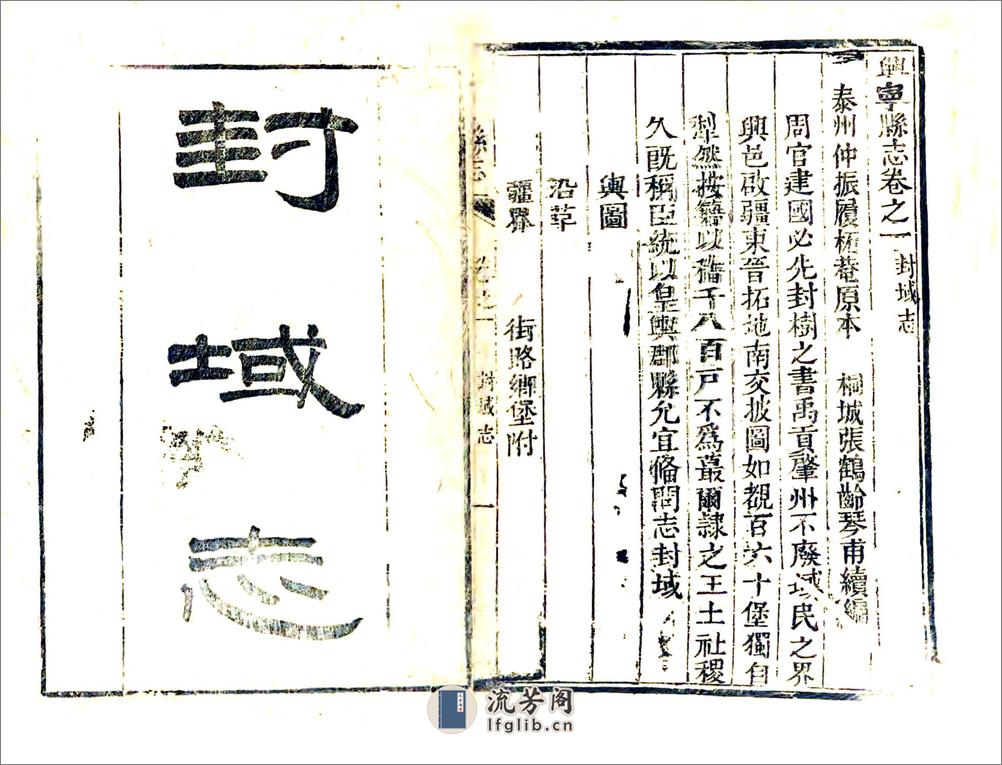 興寧縣志卷之一 封域志
泰州仲振履柘菴原本 桐城張鶴齡琴甫續編
周官建國必先封樹之書禹貢肇州不廢域民之界
興邑啟疆東晉拓地南交披圖如覩百六十堡獨自
犁然按籍以稽千八百戸不爲蕞爾隸之王土社稷
久旣稱臣統以皇輿郡縣允宜偹問志封域
輿圖
沿革
疆界 街路鄉堡附
縣志 卷之一 封域志 一
封域志
流芳阁
lfglib.cn